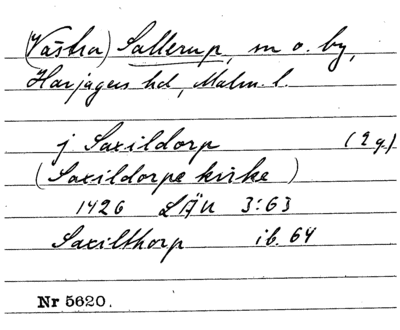 (Västra) Sallerup, sn o. by,
Harjagers hd, Malm. l.
j Saxildorp (2 g.)
(Saxildorpe kirke)
1426 LÄU 3:63
Saxilthorp ib. 64
Nr 5620.